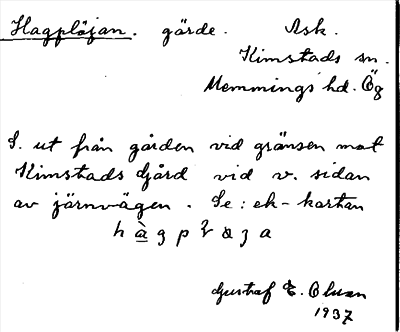 Hagplöjan. gärde. Ask.
Kimstads sn.
Memmings hd. Ög
S. ut från gården vid gränsen mot
Kimstads Gård vid v. sidan
av järnvägen. Se: ek-kartan
Gustaf E. Olsson
1937